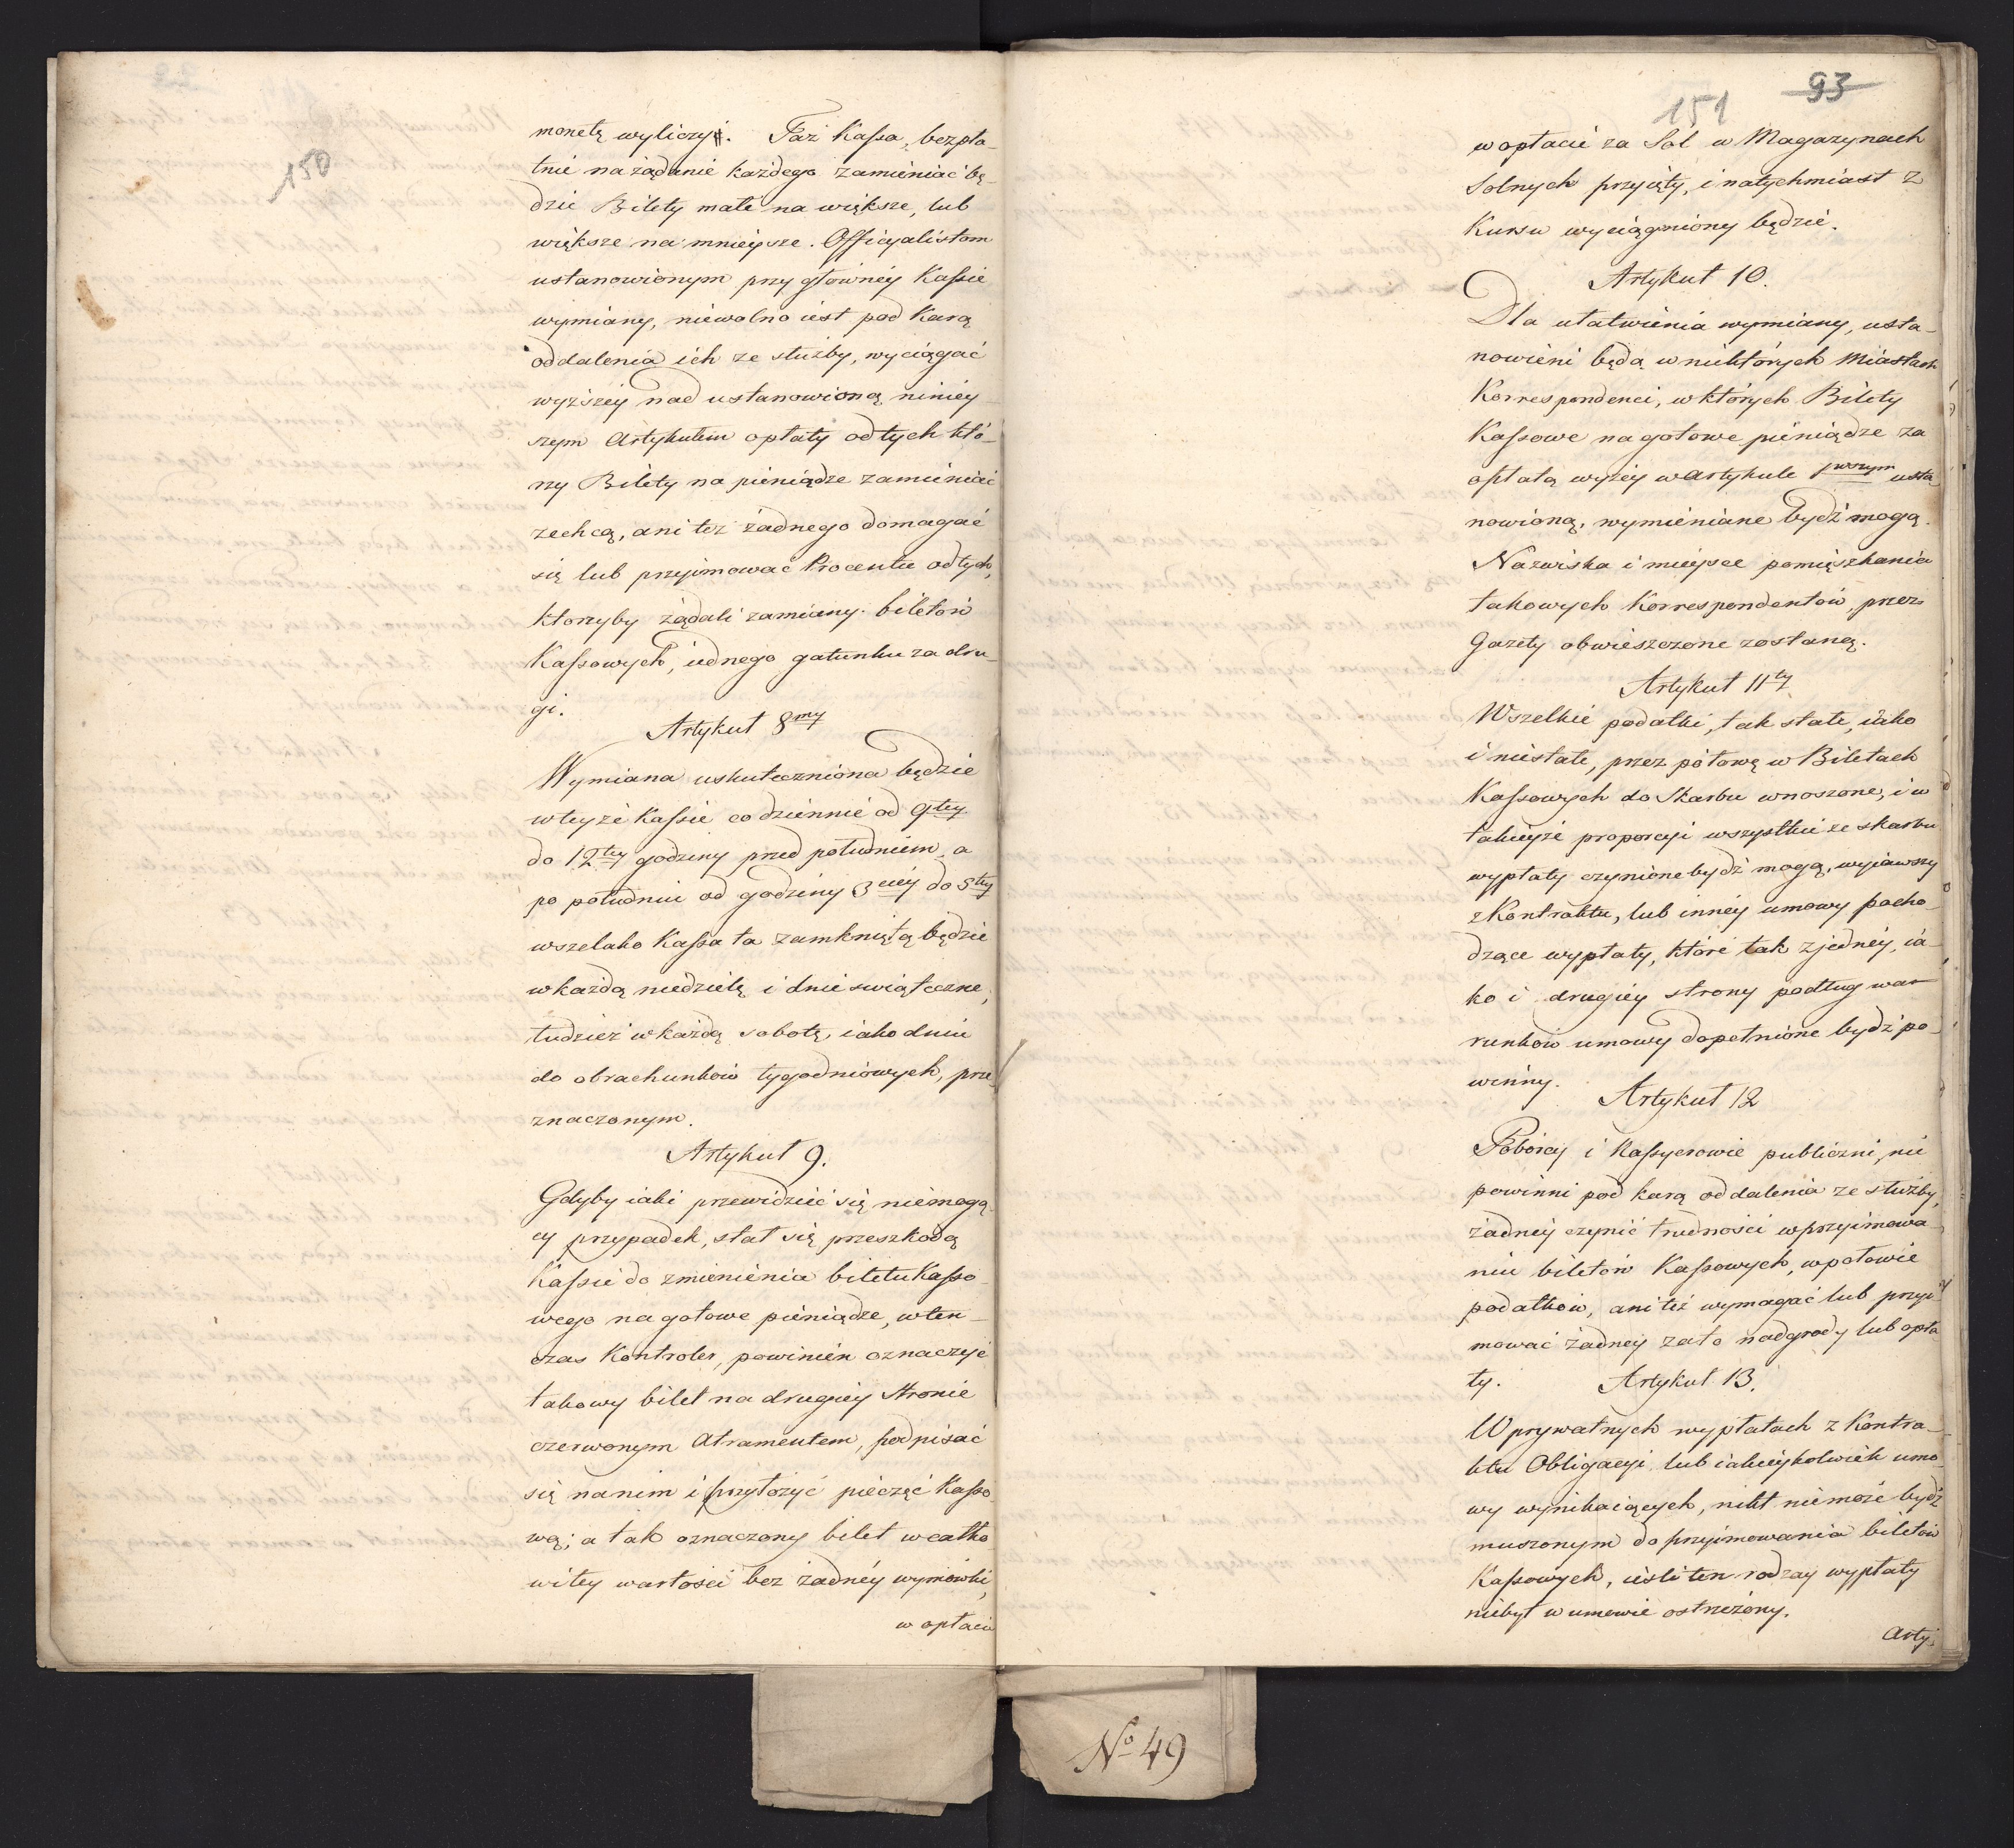 150
monetę wyliczyć. Taż Kassa, bezpła-
tnie na żądanie każdego zamieniać bę-
dzie Bilety małe na większe, lub
większe na mnieysze. Officyalistom
ustanowionym przy główney Kassie
wymiany, niewolno iest pod karą
oddalenia ich ze służby, wyciągać
wyższey nad ustanowioną niniey-
szym Artykułem opłaty od tych któ-
rzy Bilety na pieniądze zamieniać
zechcą, ani też żadnego domagać
się lub przyimować Procentu od tych,
którzyby żądali zamiany biletów
Kassowych, iednego gatunku za dru-
gi.
Artykuł 8my
Wymiana uskuteczniona będzie
w teyże Kassie codziennie od 9tey
do 12tey godziny przed południem, a
po południu od godziny 3ciey do 5tey
wszelako Kassa ta zamkniętą będzie
w każdą niedzielę i dnie swiąteczne,
tudzież w każdą sobotę, iako dniu
do obrachunków tygodniowych, prze-
znaczonym.
Artykuł 9.
Gdyby iaki przewidzieć się niemogą-
cy przypadek, stał się przeszkodą
Kassie do zmienienia biletu Kasso-
wego na gotowe pieniądze, wten-
czas Kontroler, powinien oznaczyć
takowy bilet na drugiey stronie
czerwonym Atramentem, podpisać
się na nim i przyłożyć pieczęć Kasso-
wą; a tak oznaczony bilet w całko-
witey wartości bez żadney wymówki,
w opłacie
93
151
w opłacie za Sol w Magazynach
Solnych przyięty, i natychmiast z
Kursu wyciągniony będzie.
Artykuł 10.
Dla ułatwienia wymiany, usta-
nowieni będą w niektórych Miastach
Korrespondenci, w których Bilety
Kassowe na gotowe pieniądze za
opłatą wyżey w Artykule 1wszym usta-
nowioną, wymieniane bydź mogą.
Nazwiska i mieysce pomięszkania
takowych Korrespondentów, przez
Gazety obwieszczone zostaną.
Artykuł 11ty
Wszelkie podatki, tak stałe, iako
i niestałe, przez połowę w Biletach
Kassowych do Skarbu wnoszone, i w
takieyże proporcyi wszystkie ze skarbu
wypłaty czynione bydź mogą, wyiąwszy
z Kontraktu, lub inney umowy pocho-
dzące wypłaty, które tak z jedney, ia-
ko i drugiey strony podług war-
runków umowy dopełnione bydź po-
winny.
Artykuł 12
Poborcy i Kassyerowie publiczni, nie
powinni pod karą oddalenia ze służby,
żadney czynić trudności w przyimowa-
niu biletów Kassowych, w połowie
podatków, ani też wymagać lub przyi-
mować żadney za to nadgrody lub opła-
ty.
Artykuł 13.
W prywatnych wypłatach z Kontra-
ktu Obligacyi lub iakieykolwiek umo-
wy wynikaiących, nikt niemoże bydź
muszonym do przyimowania biletów
Kassowych, ieśli ten rodzay wypłaty
niebył w umowie ostrzeżony.
Arty.
No 49